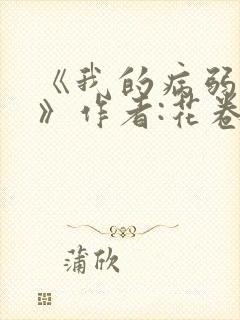 《我的病弱
》作者:花卷
蒲欣